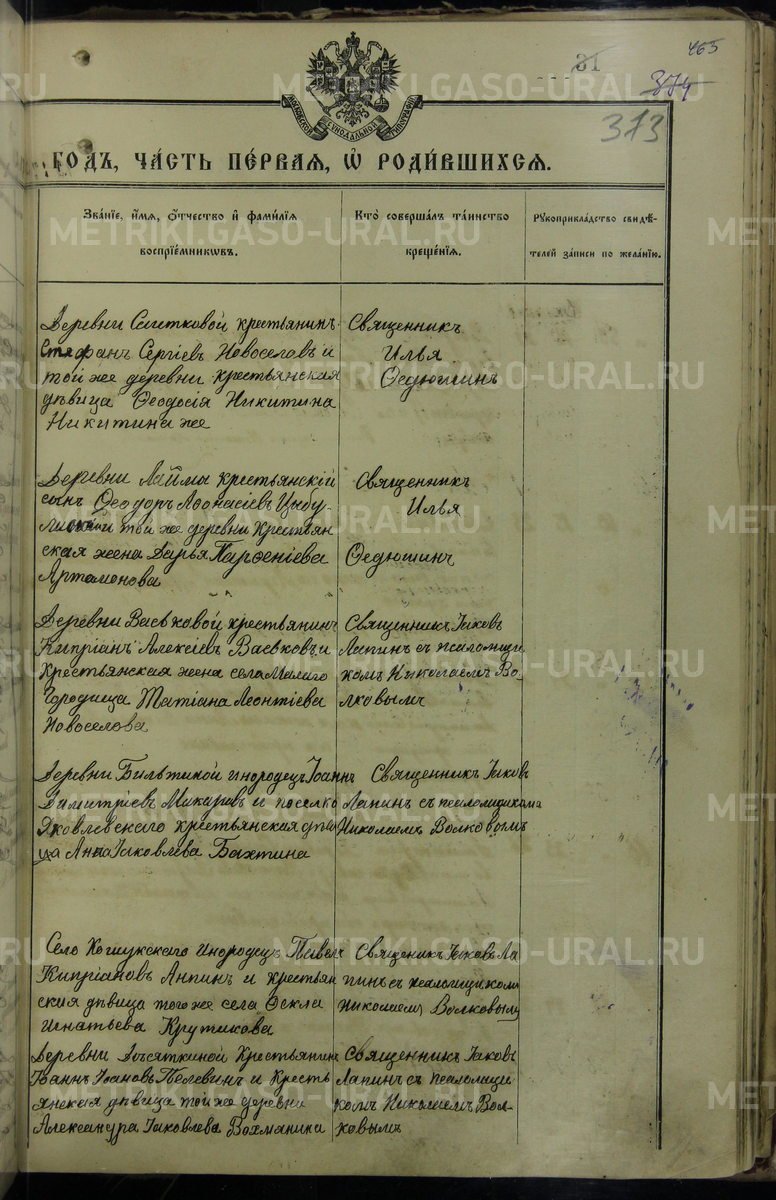 465
31
374
373
МОСКОВСКОЙ СѴНОДАЛЬНОЙ ТИПОГРАФІИ
ГОДЪ, ЧА́СТЬ ПЕ́РВАЯ, Ѡ҆ РОДИ́ВШИХСЯ.
Зва́нїе, и҆́мѧ, ѻ҆́тчество и҆ фами́лїѧ
воспрїе́мниковъ.
Кто̀ соверша́лъ та́инство
креще́нїѧ.
Рꙋкоприкла́дство свидѣ́-
телей за́писи по жела́нїю.
Деревни Ситковой крестьянинъ
Стефанъ Сергіевъ Новоселовъ и
той же деревни крестьянская
дѣвица Ѳеодосія Никитина
Никитина же
Священникъ
Илья
Ѳедюшинъ
Деревни Лайма крестьянскій
сынъ Ѳеодоръ Аѳонасіевъ Цыбу-
и той же деревни Крестьян
ская жена Дарья Парѳеніева
Артамонова
Священникъ
Илья
Ѳедюшинъ
Деревни Васьковой крестьянинъ
Кипріанъ Алексіевъ Васьковъ и
Крестьянская жена села Малаго
Городища Татіана Леонтіева
Новоселова
Священникъ Іаковъ
Лапинъ съ псаломщи
комъ Николаемъ Во-
лковымъ
Деревни инородецъ Іоаннъ
Димитріевъ Макаровъ и поселко
Яковлевскаго крестьянская дѣви
ца Анна Іаковлева Бахтина
Священникъ Іаковъ
Лапинъ съ псаломщикомъ
Николаемъ Волковымъ
Село инородецъ Павелъ
Кипріановъ Анпинъ и крестьян
ская дѣвица того же села Ѳекла
Игнатьева Крутикова
Священикъ Іаковъ Ла
пинъ съ псаломщикомъ
Николаемъ Волковымъ
Деревни Крестьянинъ
Іоаннъ Іоановъ Пелевинъ и Кресть
янская дѣвица той же деревни
Александра Іаковлева Вохманина
Священникъ Іаковъ
Лапинъ съ псаломщи
комъ Николаемъ Вол-
ковымъ
METRIKI.GASO-URAL.RU